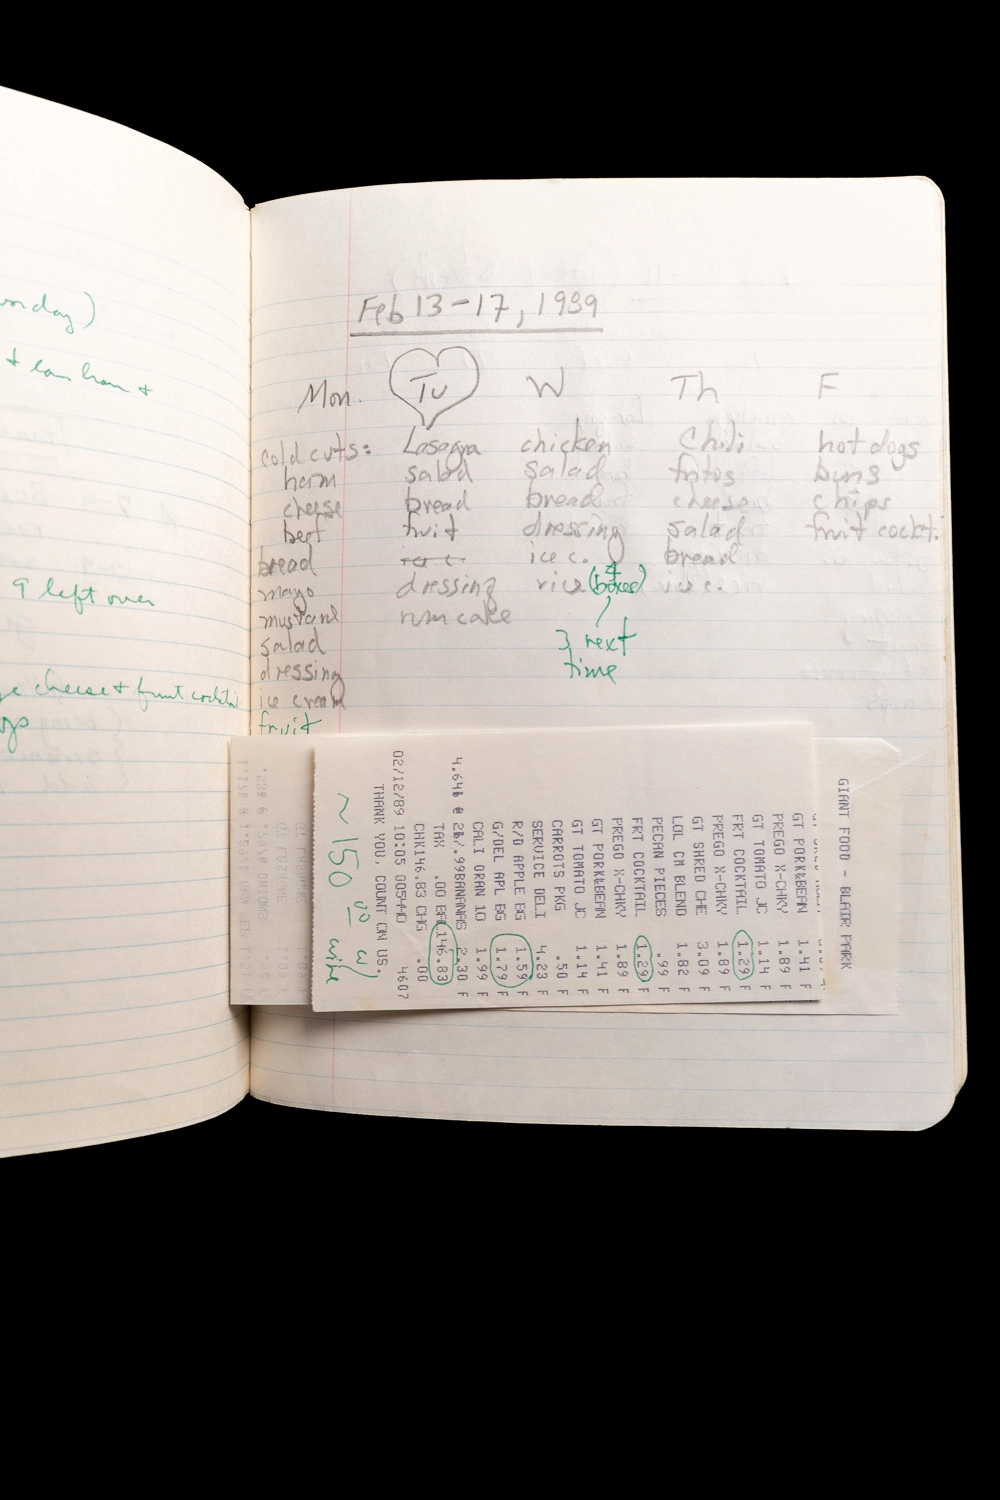 day)
+ ham +
9 left over
cheese + fruit cocktail
Feb 13-17, 1989
Mon. Tu W Th F
cold cuts: Lasagna chicken Chili hot dogs
ham salad salad fritos buns
cheese bread bread cheese chips
beef fruit dressing salad fruit cockt.
bread ice c. bread
mayo dressing rice (4 boxes) ice c.
mustard rum cake
3 next
time
salad
dressing
ice cream
fruit
GIANT FOOD - BLAIR PARK
GT PORK&BEAN 1.41 F
PREGO X-CHKY 1.89 F
GT TOMATO JC 1.14 F
FRT COCKTAIL 1.29 F
PREGO X-CHKY 1.89 F
GT SHRED CHE 3.09 F
LOL CM BLEND 1.82 F
PECAN PIECES .99 F
FRT COCKTAIL 1.29 F
PREGO X-CHKY 1.89 F
GT PORK&BEAN 1.41 F
GT TOMATO JC 1.14 F
CARROTS PKG .50 F
SERVICE DELI 4.23 F
R/D APPLE BG 1.59 F
G/DEL APL BG 1.79 F
CALI ORAN 10 1.99 F
4.64lb @ 2lb/.99BANANAS 2.30 F
TAX .00 BAL 146.83
CHK146.83 CHG .00
02/12/89 10:05 4607
THANK YOU, COUNT ON US.
~ 150 00 w/ wine